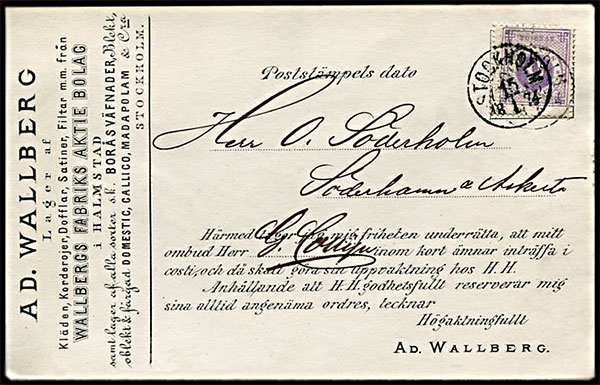 AD. WALLBERG
Lager af
Kläden, Korderojer, Dofflar, Satiner, Filtar m.m. från
WALLBERGS FABRIKS AKTIE BOLAG
i HALMSTAD
samt lager af alla sorter s.k. BORÅSVÄFNADER, Blekt,
oblekt & färgad DOMESTIC, CALLICO, MADAPOLAM & C:ra
STOCKHOLM.
STOCKHOLM
15
Poststämpels dato
Herr O. Söderholm
Söderhamn
Härmed tager jag mig friheten underrätta, att mitt
ombud Herr inom kort ämnar inträffa i
costi, och då skall göra sin uppvaktning hos H.H.
Anhållande att H.H. godhetsfullt reserverar mig
sina alltid angenäma ordres, tecknar
Högaktningfullt
AD. WALLBERG.